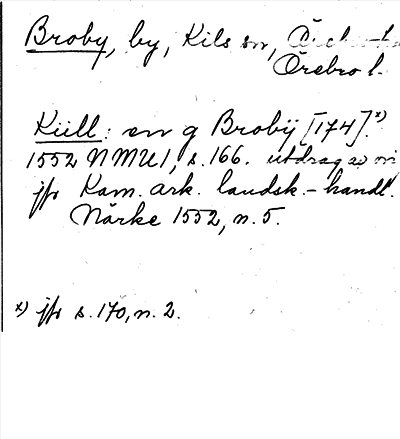 Broby, by, Kils sn, Örebro
Örebro l.
Kiill: en g Brobÿ [174].x)
1552 NMU1, s. 166. utdrag av
jfr Kam. ark. landsk.-handl.
Närke 1552, n. 5.
x) jfr s. 170, n. 2.